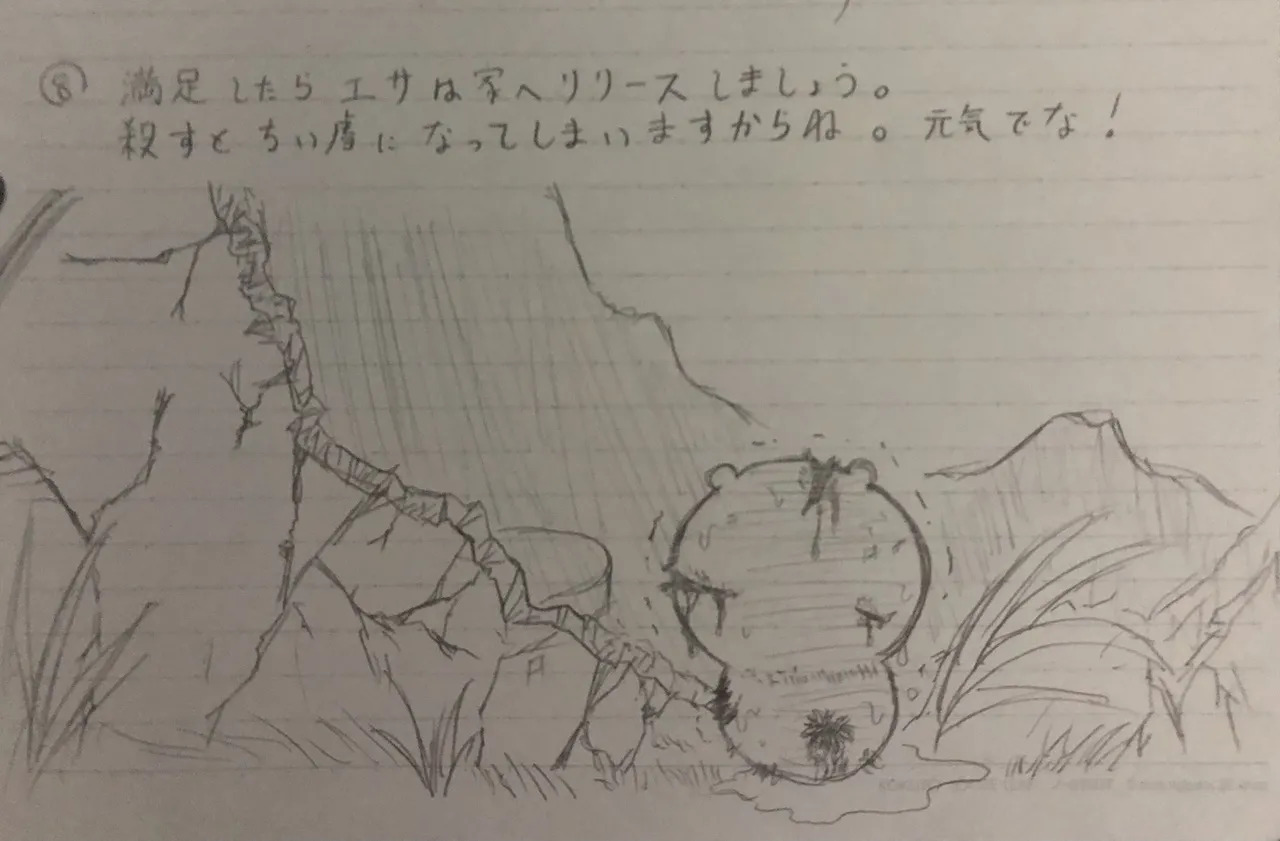 ⑧ 満足したらエサは家へリリースしましょう。
殺すとちい虐になってしまいますからね。元気でな!